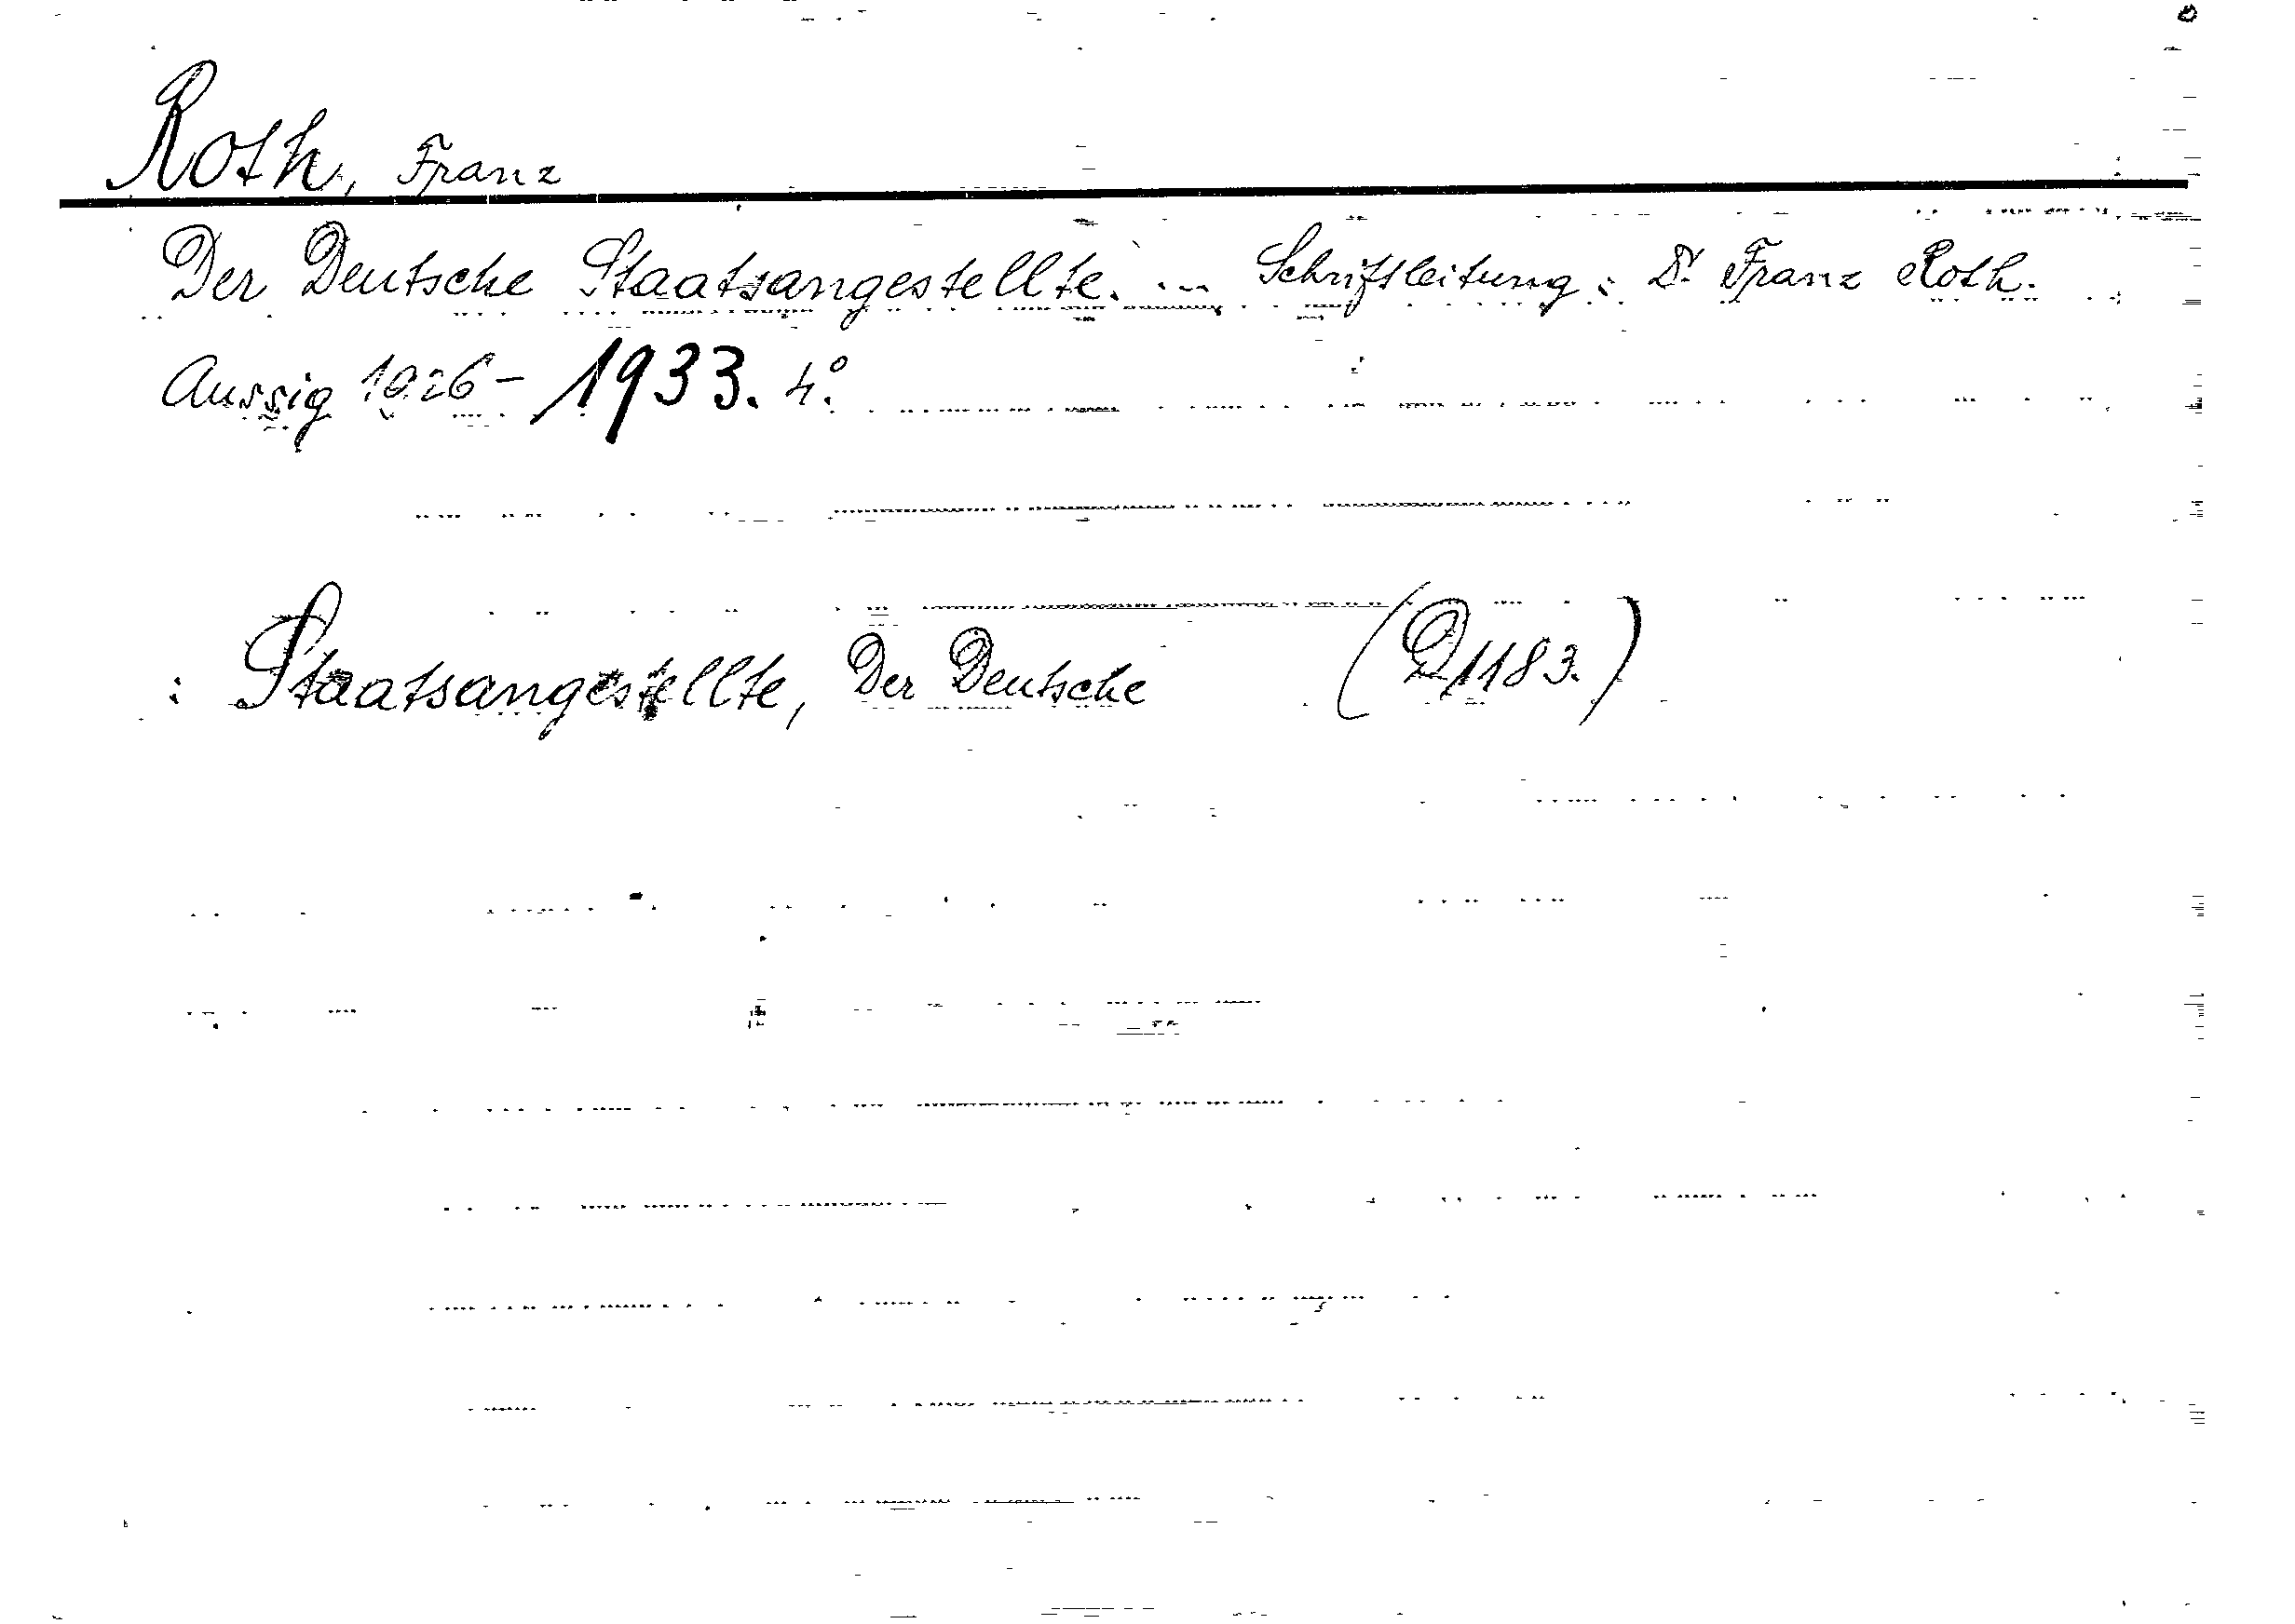 Roth, Franz
Der Deutsche Staatsangestellte. ... Schriftleitung: Dr. Franz Roth.
Aussig 1926-1933. 4°.
: Staatsangestellte, Der Deutsche (D1183.)